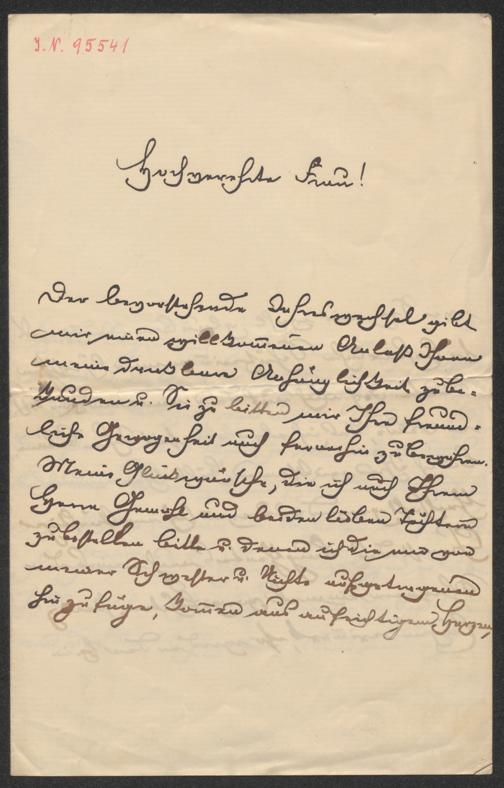 J.N. 95541
Hochverehrte Frau!
Der bevorstehende Jahreswechsel gibt
mir einen willkommenen Anlaß Ihnen
meine dankbare Anhänglichkeit zu be-
kunden u. Sie zu bitten mir Ihre freund-
liche Gewogenheit auch fernerhin zu bewahren.
Meine Glückwünsche, die ich auch Ihrem
Herrn Gemahl und beiden lieben Töchtern
zu bestellen bitte u. denen ich die mir von
meiner Schwester u. Nichte aufgetragenen
hinzufüge, kommen aus aufrichtigem Herzen,